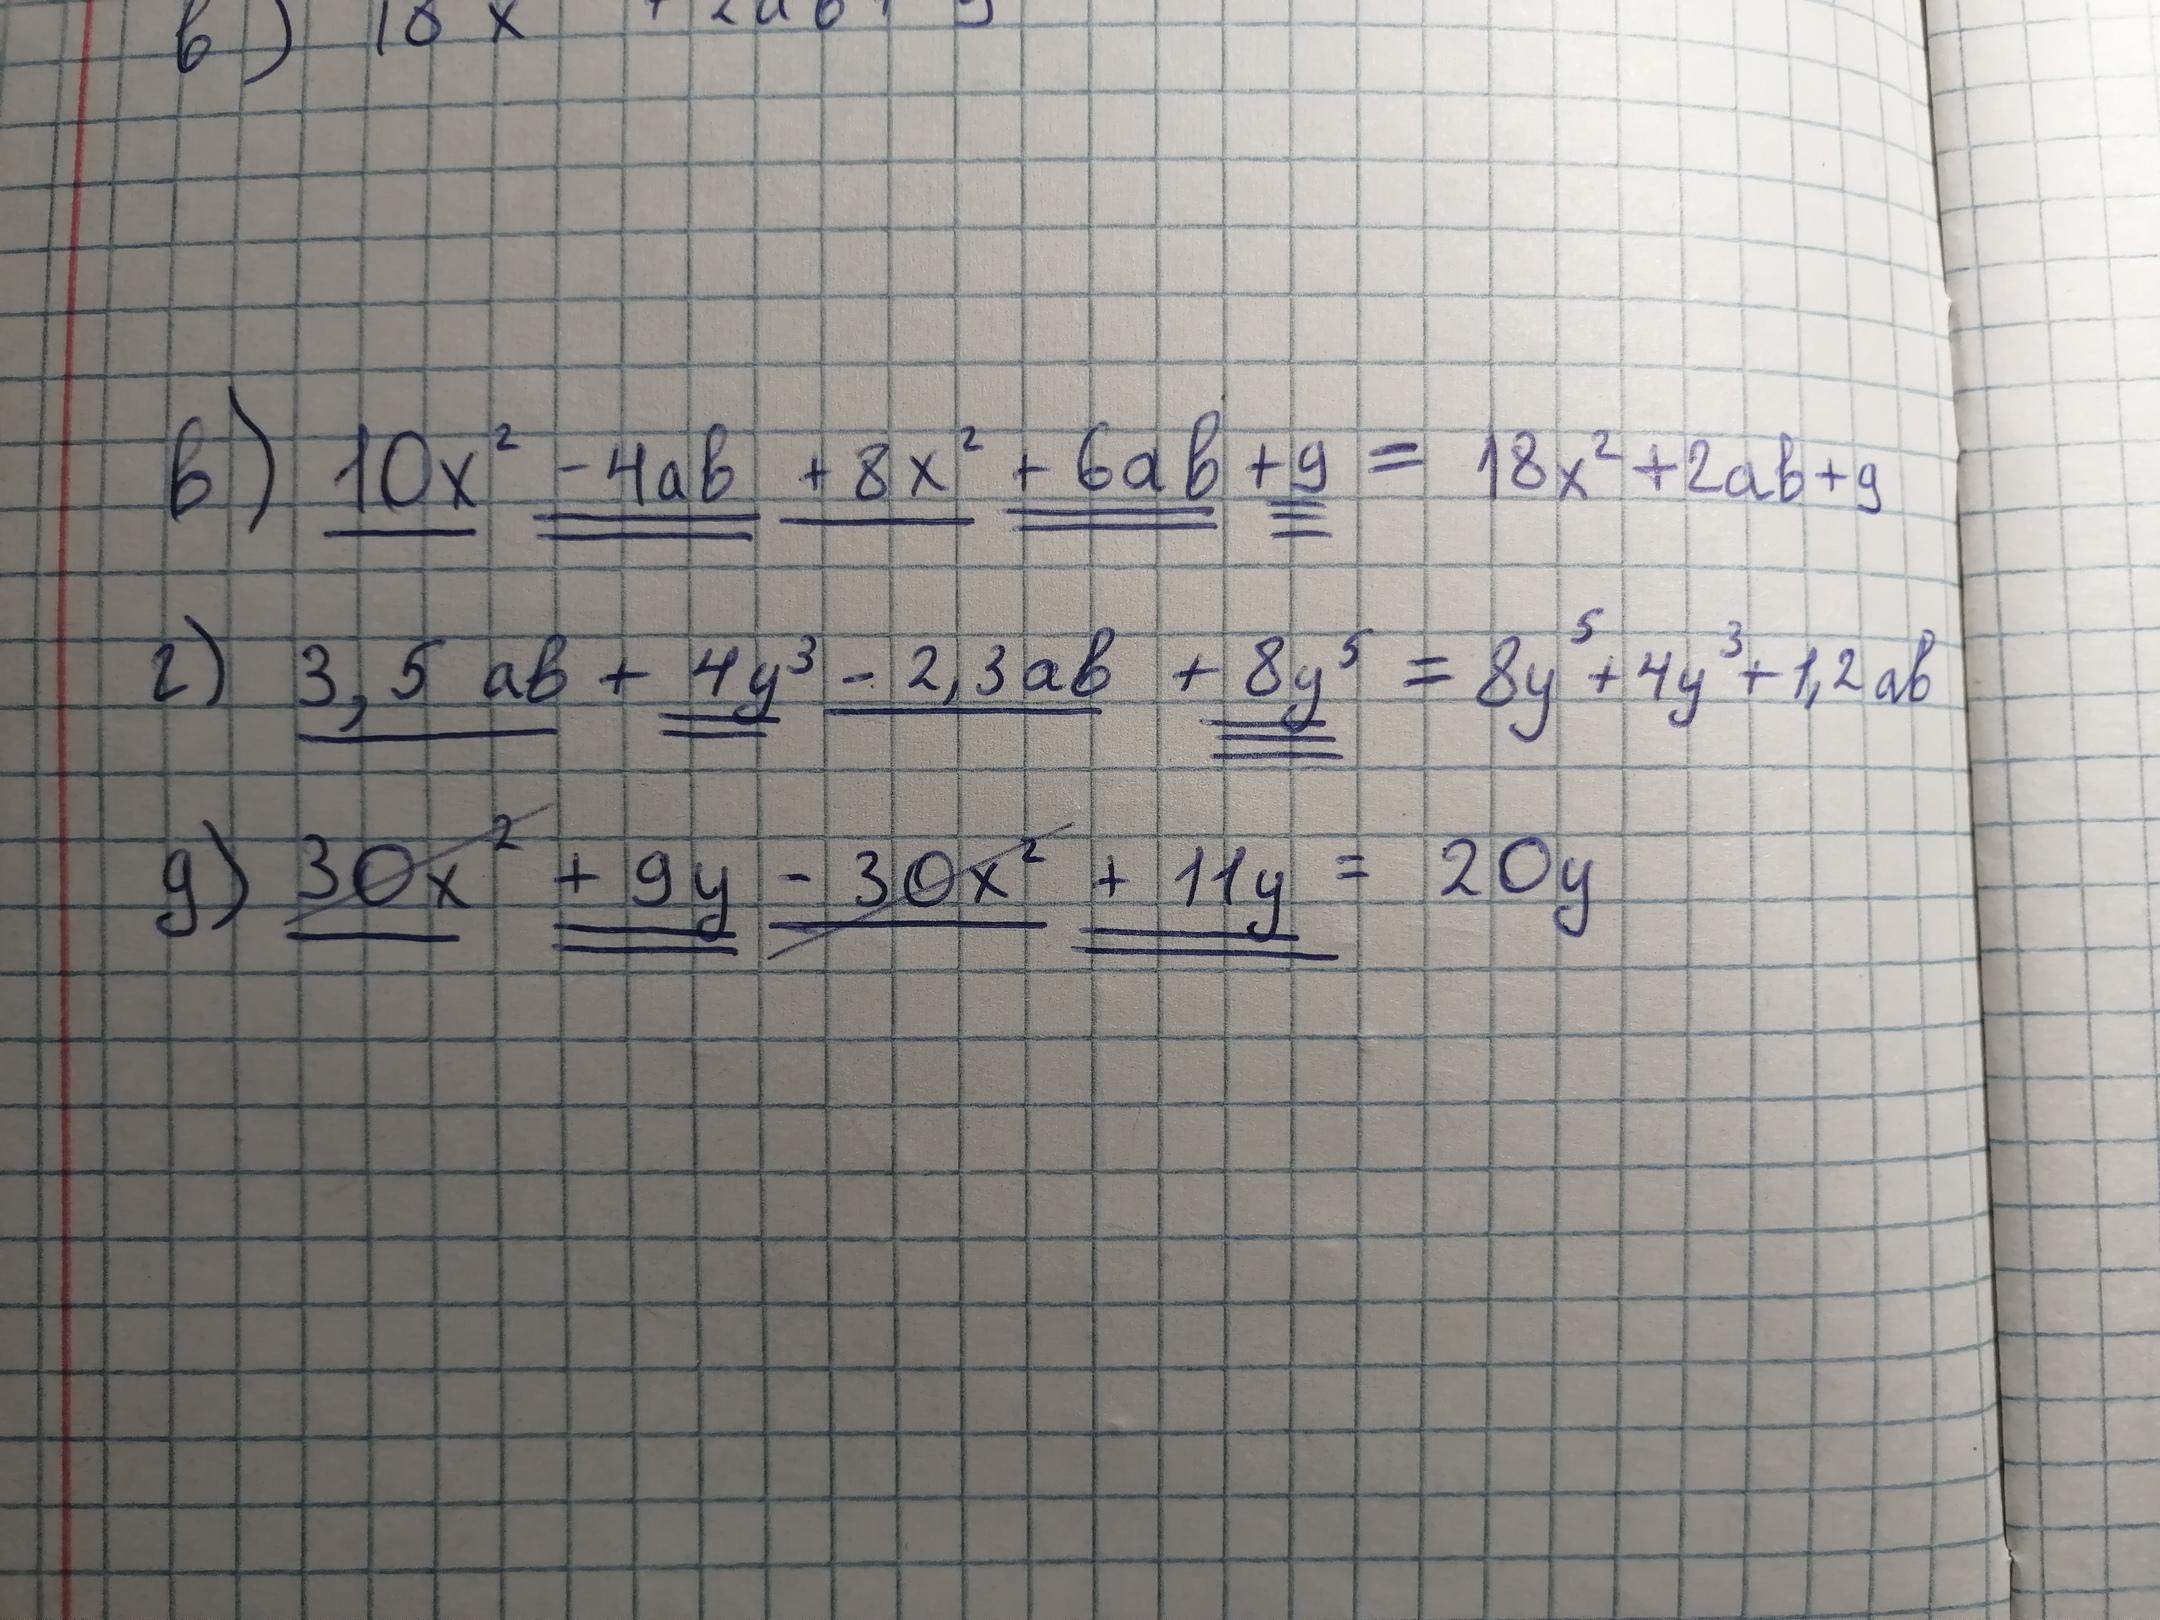 в) 18x + 2ab + 9
в) 10x² - 4ab + 8x² + 6ab + 9 = 18x² + 2ab + 9
г) 3,5 ab + 4y³ - 2,3ab + 8y⁵ = 8y⁵ + 4y³ + 1,2ab
g) 30x² + 9y - 30x² + 11y = 20y